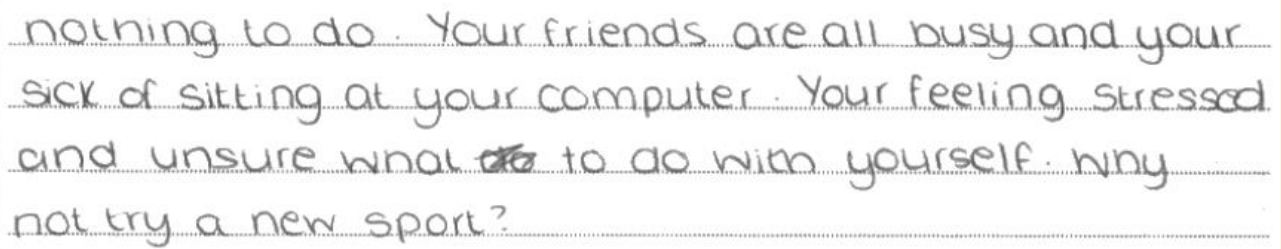 nothing to do. Your friends are all busy and your
sick of sitting at your computer. Your feeling stressed
and unsure what to do with yourself. Why
not try a new sport?